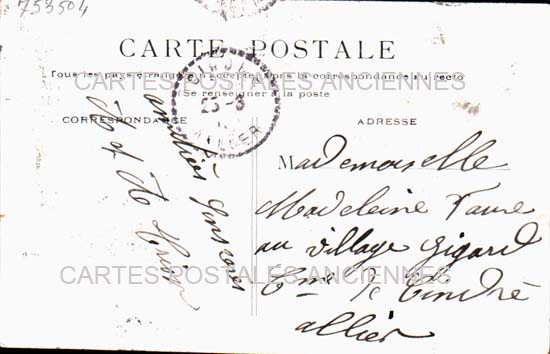 753504
CARTE POSTALE
Tous les pays étrangers n'acceptent pas la correspondance au recto
(Se renseigner à la poste
CORRESPONDANCE
ADRESSE
ALLIER
amitiés sincères
Mademoiselle
Madeleine Faure
au village Gigard
Cne de Cindré
allier
CARTES POSTALES ANCIENNES
CARTES POSTALES ANCIENNES